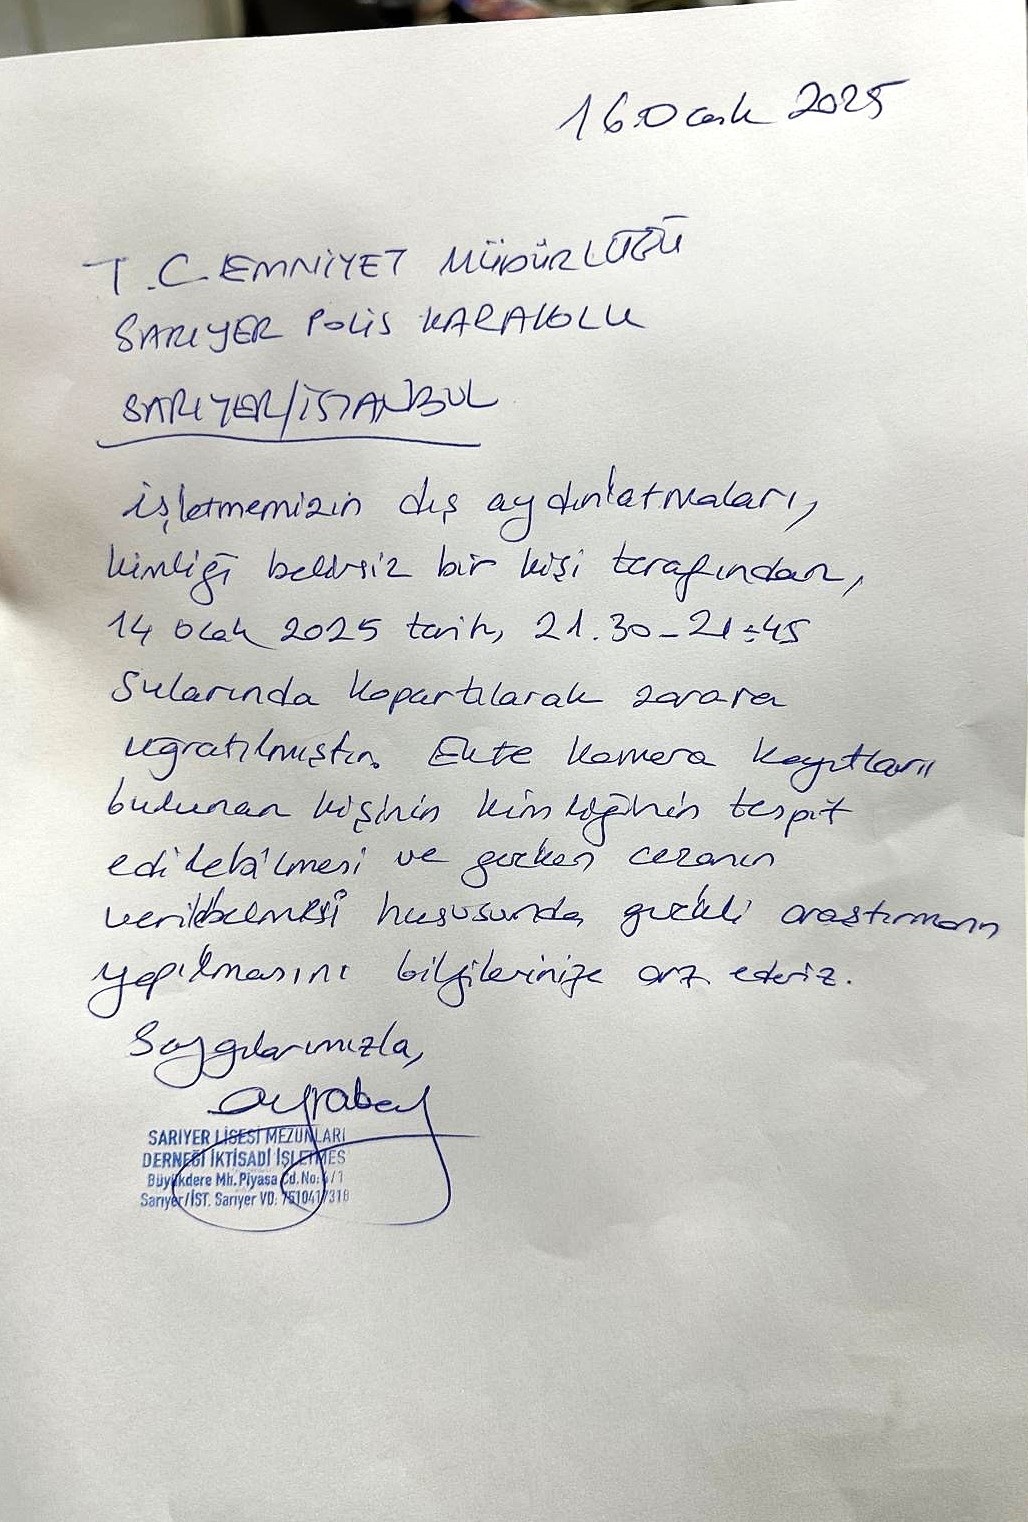 16 Ocak 2025
T.C EMNİYET MÜDÜRLÜĞÜ
SARIYER POLİS KARAKOLU
SARIYER/İSTANBUL
İşletmemizin dış aydınlatmaları,
kimliği belirsiz bir kişi tarafından,
14 Ocak 2025 tarih, 21.30-21:45
Sularında kopartılarak zarara
uğratılmıştır. Ekte kamera kayıtları
bulunan kişinin kimliğinin tespit
edilebilmesi ve gereken cezanın
verilebilmesi hususunda gerekli araştırmanın
yapılmasını bilgilerinize arz ederiz.
Saygılarımızla,
SARIYER LİSESİ MEZUNLARI
DERNEĞİ İKTİSADİ İŞLETMES
Büyükdere Mh. Piyasa Cd. No: /1
Sarıyer/İST. Sarıyer VD: 7510417318